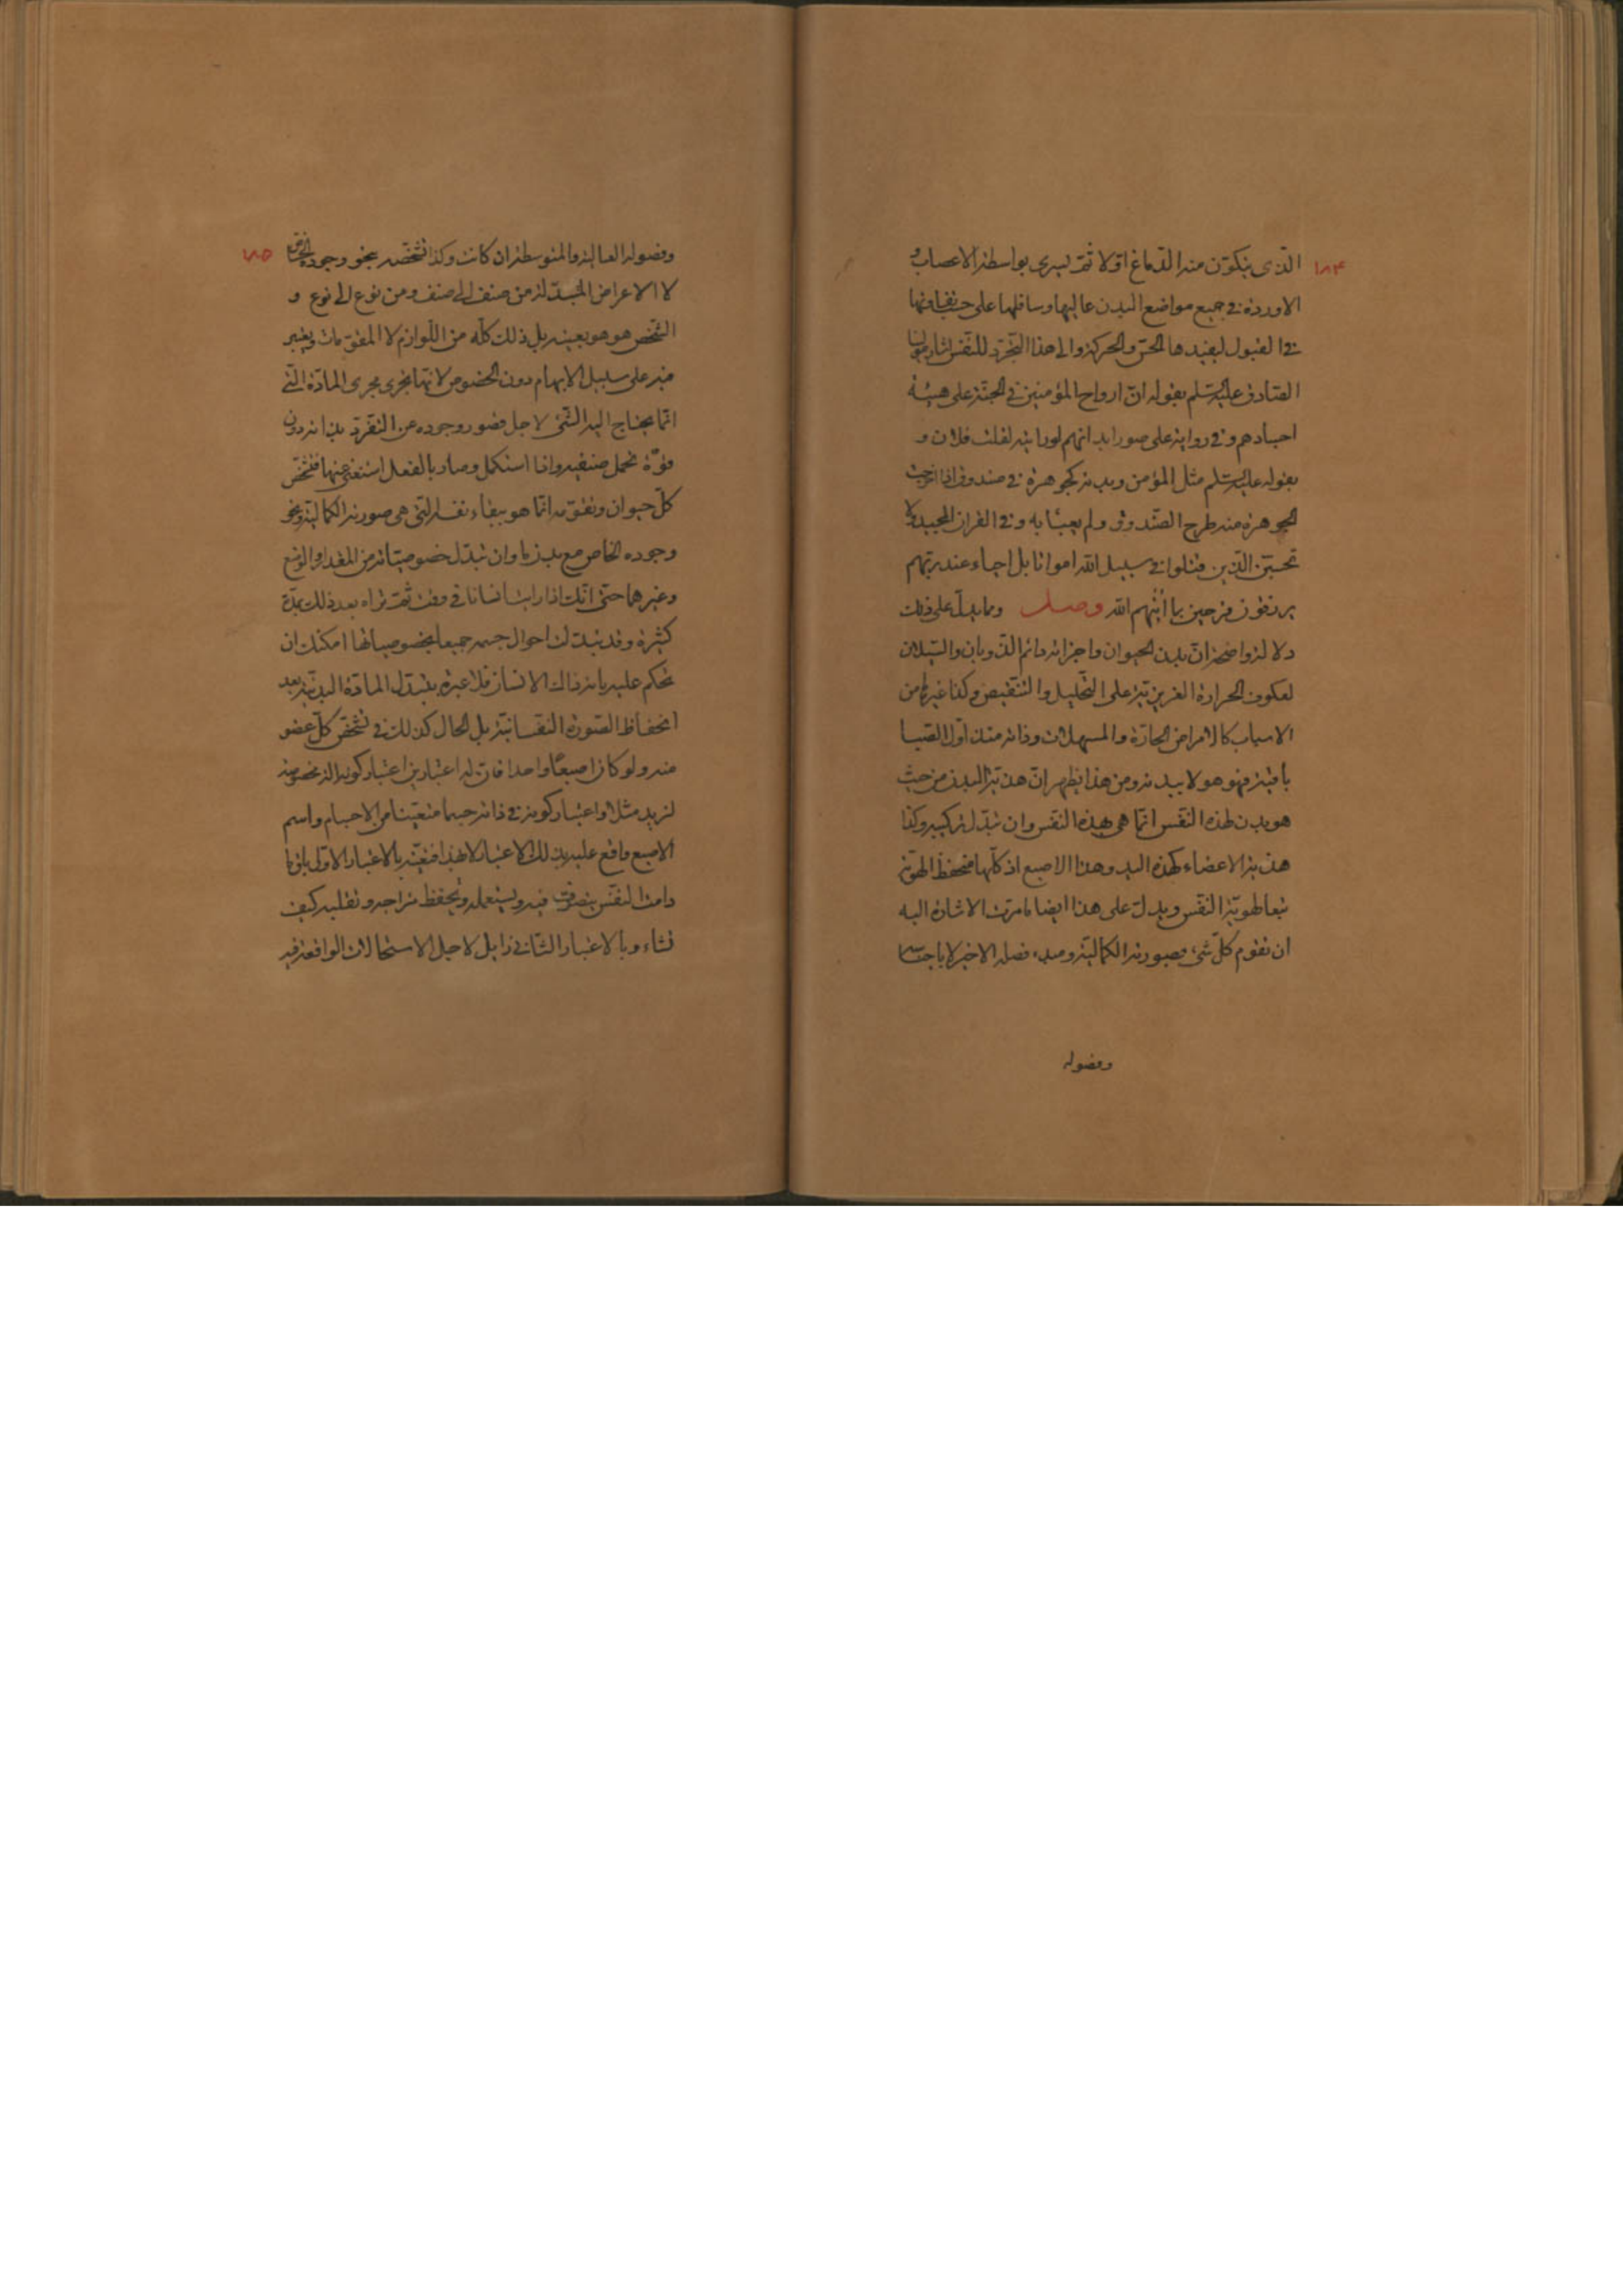 ١٨٤
الذى يتكون منه الدماغ اولا ثم يسرى بواسطة الاعصاب و
الاوردة فى جميع مواضع البدن عاليها وسافلها على حسب تفاوتها
فى القبول ليفيدها الحس والحركة والى هذا التجرد للنفس اشار مولينا
الصادق عليه السلم بقوله ان ارواح المؤمنين فى الجنة على هيئة
اجسادهم وفى رواية على صور ابدانهم لو رايته لقلت فلان و
بقوله عليه السلم مثل المؤمن وبدنه كجوهرة فى صندوق اذا اخرجت
الجوهرة منه طرح الصندوق ولم يعبئا به وفى القران المجيد ولا
تحسبن الذين قتلوا فى سبيل الله امواتا بل احياء عند ربهم
يرزقون فرحين بما اتيهم الله وصل ومما يدل على ذلك
دلالة واضحة ان بدن الحيوان واجزائه دائم الذوبان والسيلان
لعكوف الحرارة الغريزية على التحليل والتنقيص وكذا غيرها من
الاسباب كالامراض الحارة والمسهلات وذاته منذ اول الصبا
باقية فهو هو لا ببدنه ومن هذا يظهر ان هذية البدن من حيث
هو بدن لهذه النفس انما هى بهذه النفس وان تبدل تركيبه وكذا
هذية الاعضاء كهذه اليد وهذا الاصبع اذ كلها منحفظ الهوية
تبعا لهوية النفس ويدل على هذا ايضا ما مرت الاشارة اليه
ان تقوم كل شئ بصورته الكمالية ومبدء فصله الاخير لا باجناسه
وفصوله
١٨٥
وفصوله العالية والمتوسطة ان كانت وكذا تشخصه بنحو وجوده الخاص
لا الاعراض المتبدلة من صنف الى صنف ومن نوع الى نوع و
الشخص هو هو بعينه بل ذلك كله من اللوازم لا المقومات ويعتبر
فيه على سبيل الابهام دون الخصوص لانها تجرى مجرى المادة التى
انما يحتاج اليه الشئ لاجل قصور وجوده عن التفرد بذاته دون
قوة تحمل ضعفيه واذا استكمل وصار بالفعل استغنى عنها فتشخص
كل حيوان وتقومه انما هو ببقاء نفسه التى هى صورته الكمالية ونحو
وجوده الخاص مع بدن ما وان تبدل خصوصياته من المقدار والوضع
وغيرهما حتى انك اذا رايت انسانا فى وقت ثم تراه بعد ذلك بمدة
كثيرة وقد تبدلت احوال جسمه جميعا بخصوصياتها امكنك ان
تحكم عليه بانه ذاك الانسان فلا عبرة بتبدل المادة البدنية بعد
انحفاظ الصورة النفسانية بل الحال كذلك فى تشخص كل عضو
منه ولو كان اصبعا واحدا فان له اعتبارين اعتبار كونه الة مخصوصة
لزيد مثلا واعتبار كونه فى ذاته جسما متعينا من الاجسام واسم
الاصبع واقع عليه بذلك الاعتبار لا بهذا فتعينه بالاعتبار الاول باق ما
دامت النفس يتصرف فيه ويستعمله وتحفظ مزاجه وتقلبه كيف
تشاء وبالاعتبار الثانى زايل لاجل الاستحالات الواقعة فيه